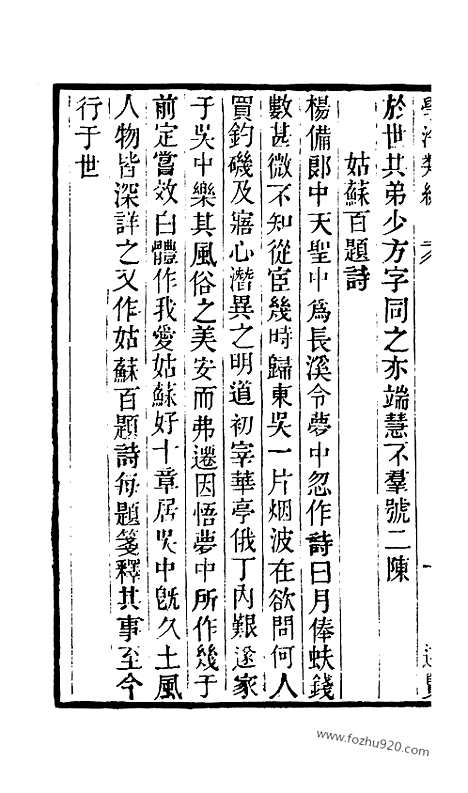 於世其弟少方字同之亦端慧不羣號二陳
姑蘇百題詩
楊備郎中天聖中爲長溪令夢中忽作詩曰月俸蚨錢
數甚微不知從宦幾時歸東吳一片烟波在欲問何人
買釣磯及寤心潛異之明道初宰華亭俄丁內艱遂家
于吳中樂其風俗之美安而弗遷因悟夢中所作幾于
前定嘗效白體作我愛姑蘇好十章居吳中旣久土風
人物皆深詳之又作姑蘇百題詩每題箋釋其事至今
行于世
www.fozhu920.com